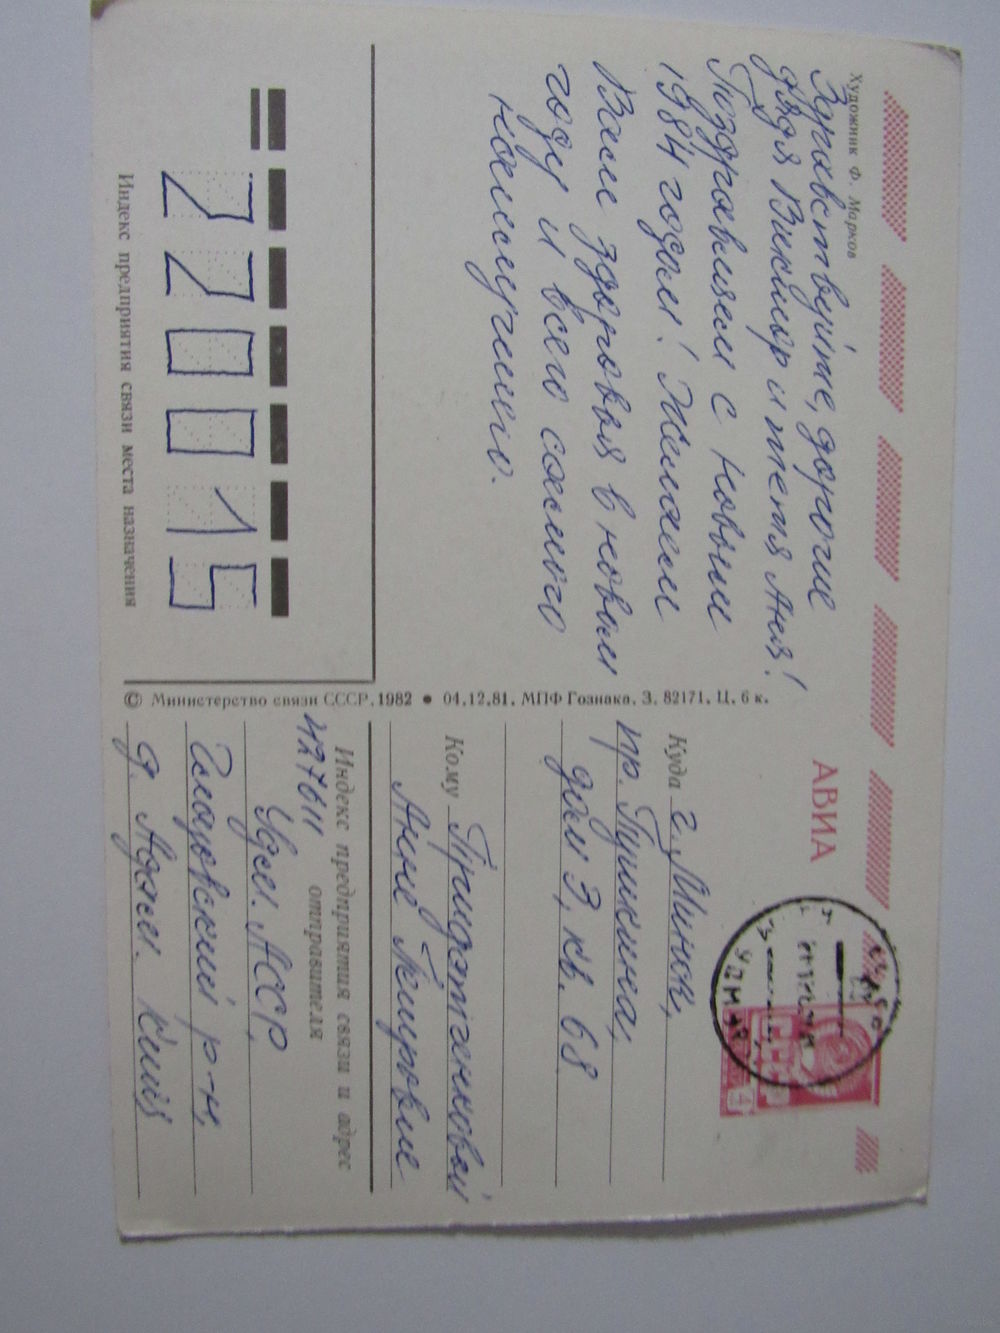 Художник Ф. Марков
Здравствуйте, дорогие
дядя Виктор и тетя Аня!
Поздравляем с новым
1984 годом! Желаем
Вам здоровья в новом
году и всего самого
наилучшего.
220015
Индекс предприятия связи места назначения
© Министерство связи СССР, 1982 • 04.12.81. МПФ Гознака. З. 82171. Ц. 6 к.
АВИА
Куда г. Минск,
пр. Пушкина,
дом 3, кв. 68
Кому
Анне
Индекс предприятия связи и адрес
отправителя
427611
Удм. АССР,
Глазовский р-н,
д. Адам.